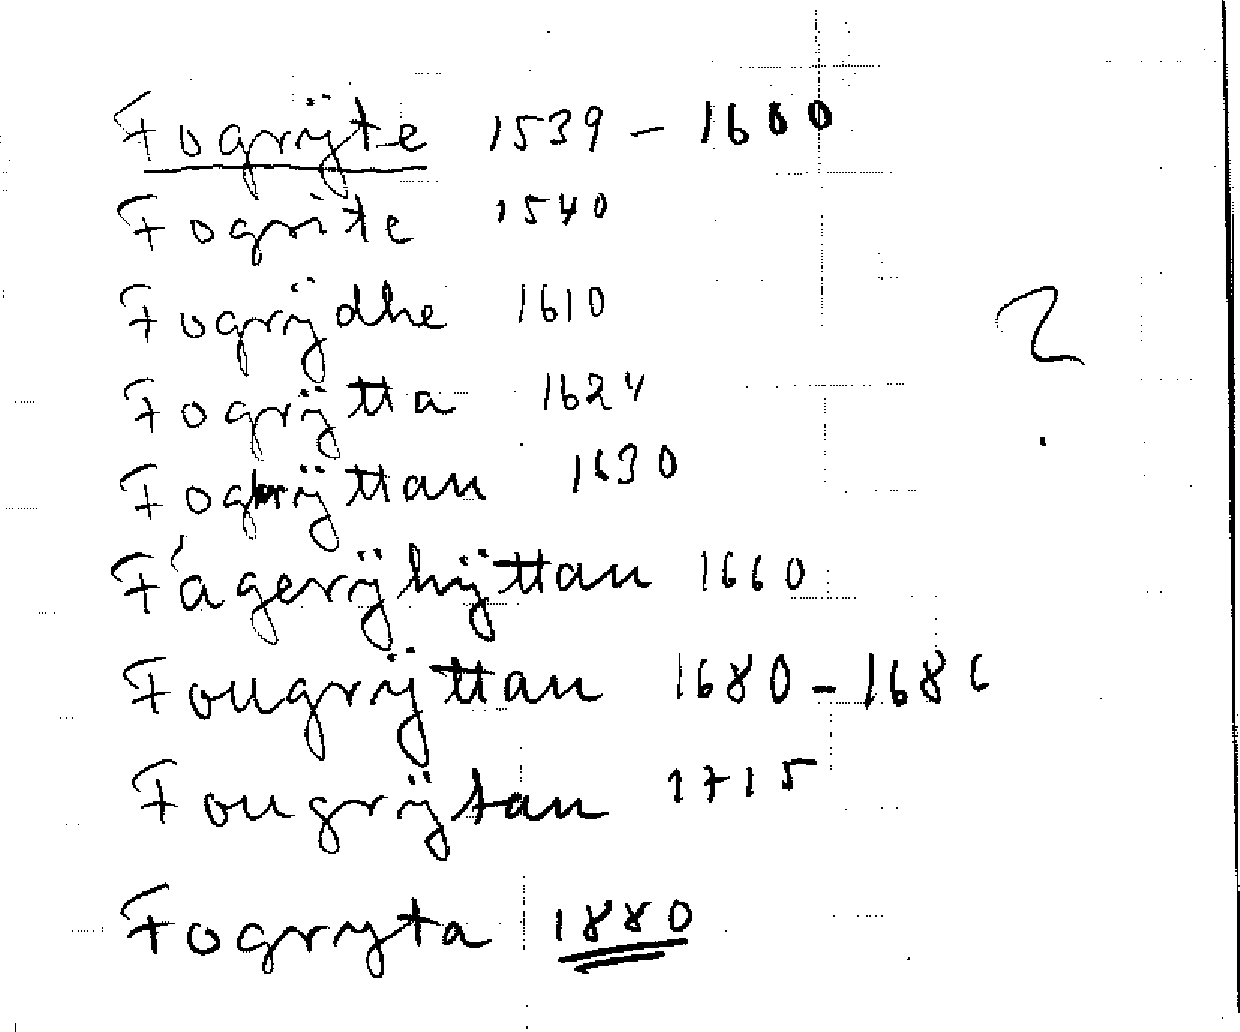 Fogrÿte 1539 – 1600
Fogrite 1540
Fogrÿdhe 1610
?
Fogrÿtta 1624
Fogrÿttan 1630
Fágerÿhÿttan 1660
Fougrÿttan 1680 – 1686
Fougrÿtan 1715
Fogryta 1880